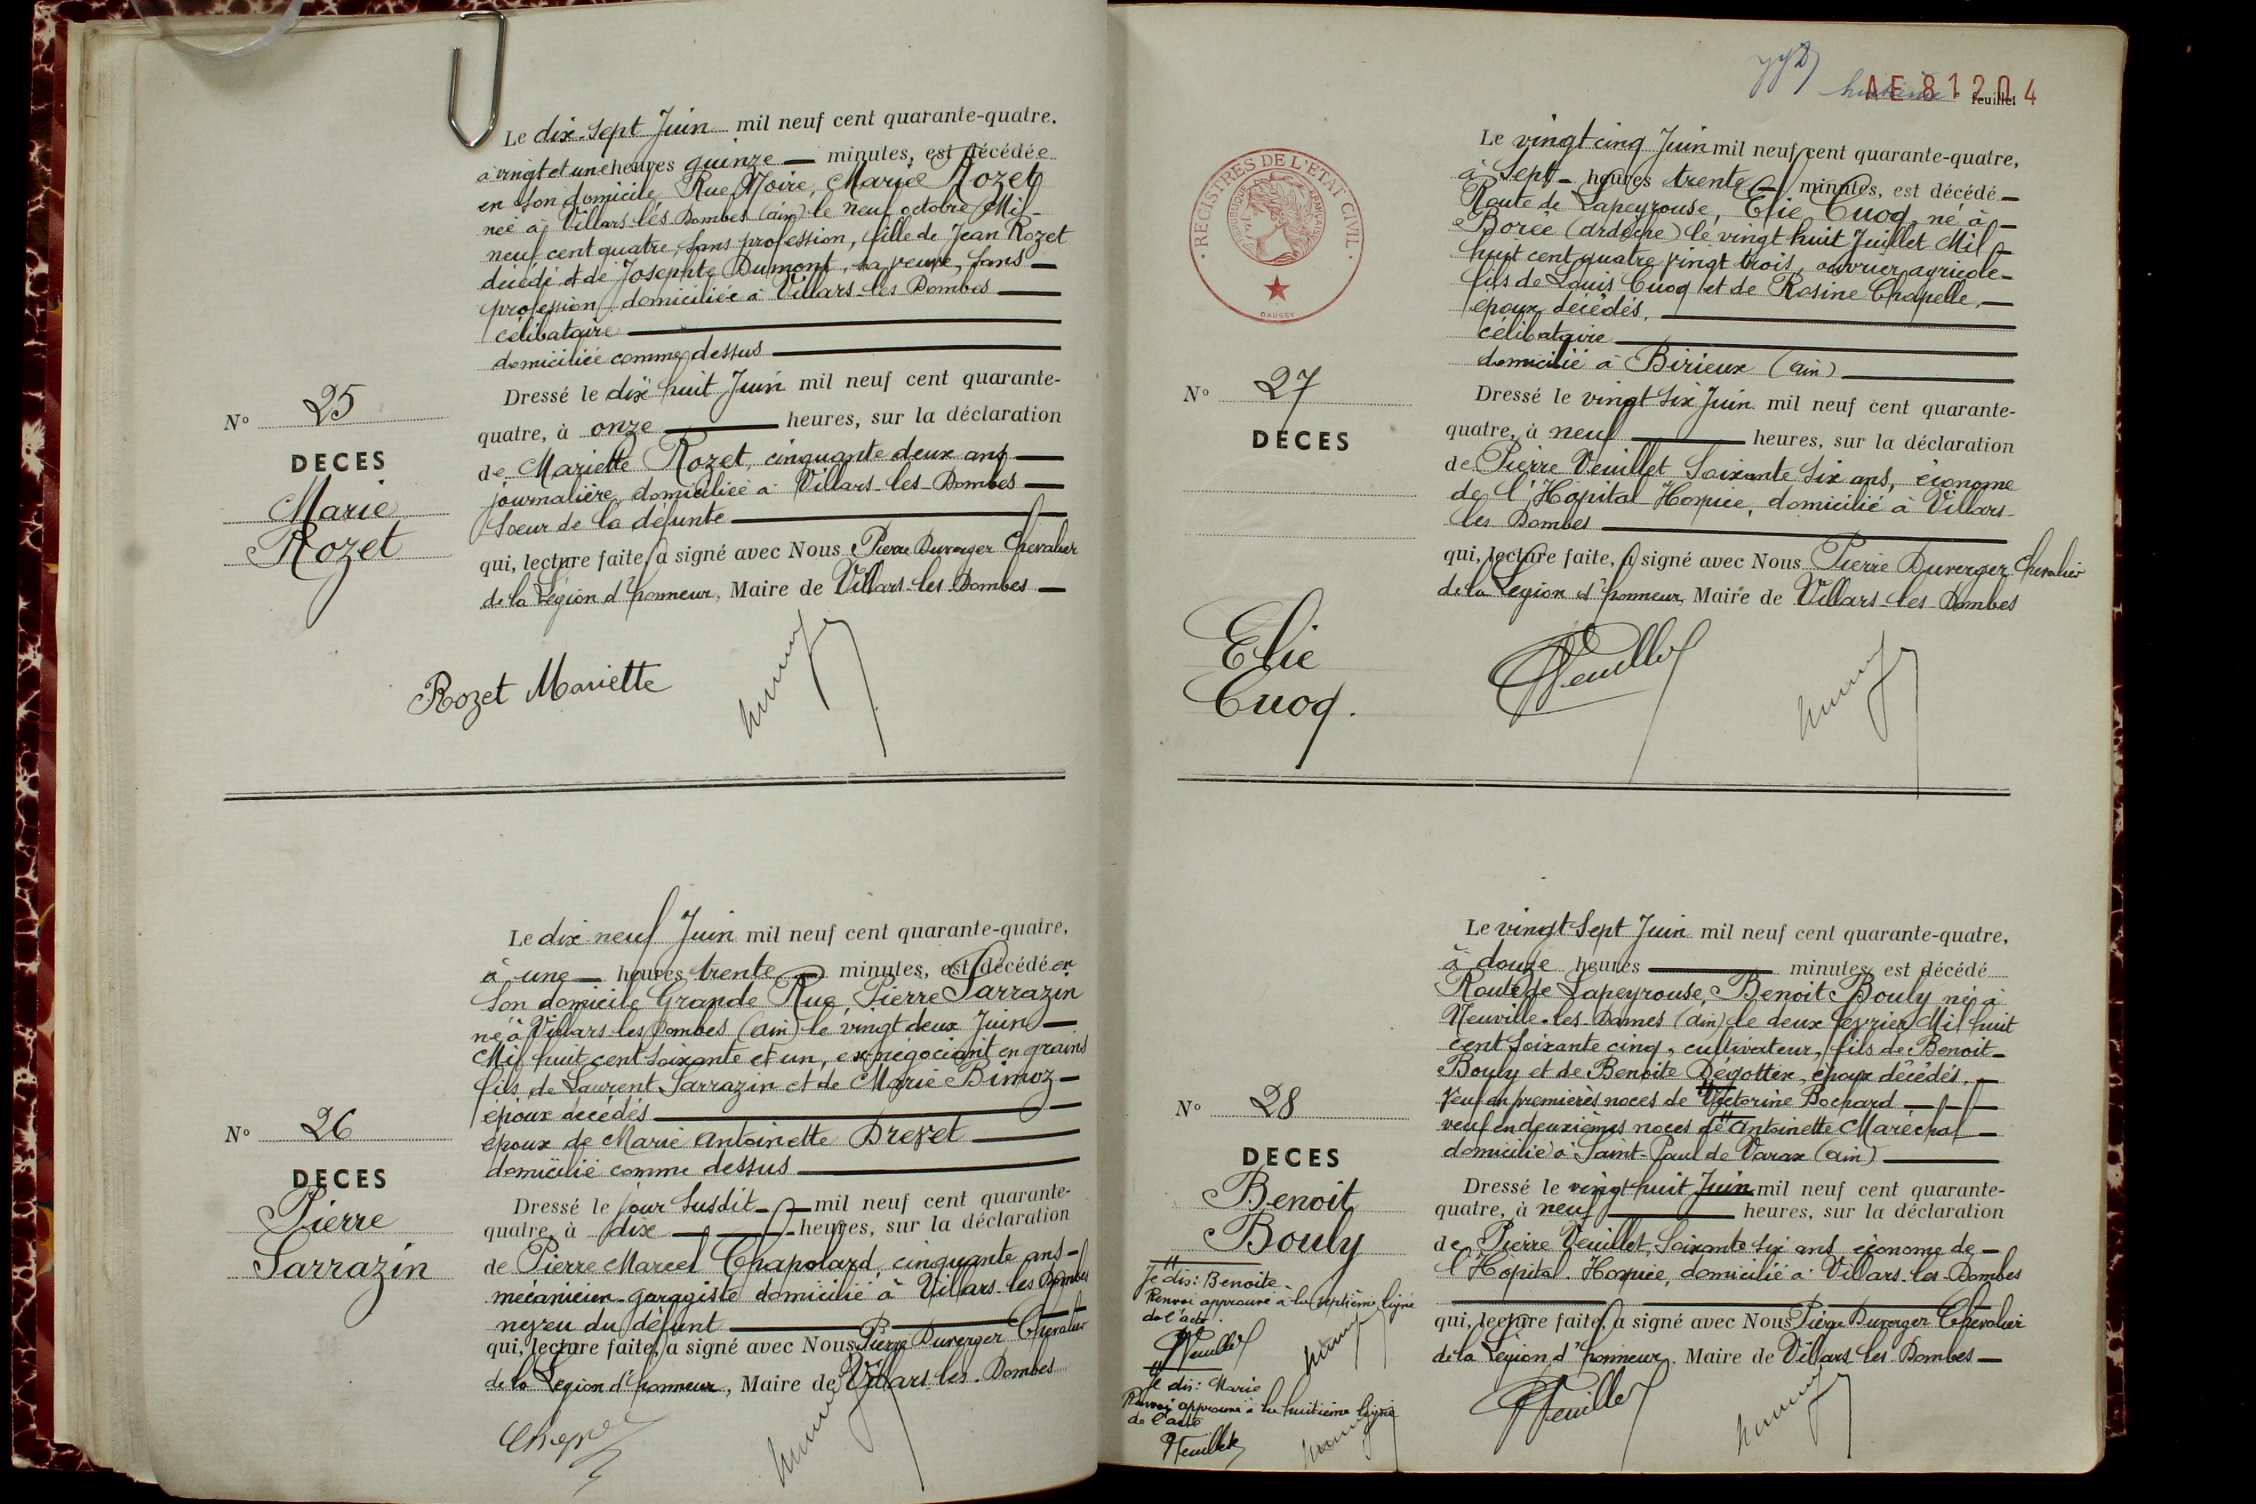 Le dix-sept Juin mil neuf cent quarante-quatre.
à vingt et une heures quinze — minutes, est décédée
en son domicile Rue Noire, Marie Rozet
née à Villars-les-Dombes (ain) le neuf octobre Mil-
neuf cent quatre, sans profession, fille de Jean Rozet
décédé et de Josephte Dumont, sa veuve, sans —
profession domiciliée à Villars-les-Dombes —
célibataire —
domiciliée comme dessus —
Dressé le dix huit Juin mil neuf cent quarante-
quatre, à onze — heures, sur la déclaration
de Mariette Rozet, cinquante deux ans —
journalière, domiciliée à Villars-les-Dombes —
Soeur de la défunte —
qui, lecture faite, a signé avec Nous Pierre Duverger Chevalier
de la Légion d'honneur, Maire de Villars-les-Dombes —
N° 25
DECES
Marie
Rozet
Rozet Mariette
Le dix neuf Juin mil neuf cent quarante-quatre,
à une — heures trente — minutes, est décédé en
son domicile Grande Rue, Pierre Sarrazin
né à Villars-les-Dombes (ain) le vingt deux Juin —
Mil huit cent soixante et un, ex-négociant en grains
fils de Laurent Sarrazin et de Marie Bimoz —
époux décédés —
époux de Marie Antoinette Drevet —
domicilié comme dessus —
Dressé le jour susdit — mil neuf cent quarante-
quatre, à dix — heures, sur la déclaration
de Pierre Marcel Chapolard, cinquante ans —
mécanicien-garagiste domicilié à Villars-les-Dombes
neveu du défunt —
qui, lecture faite, a signé avec Nous Pierre Duverger Chevalier
de la Légion d'honneur, Maire de Villars-les-Dombes
N° 26
DECES
Pierre
Sarrazin
AE 81204
huitième feuillet
REGISTRES DE L'ETAT CIVIL
REPUBLIQUE FRANCAISE
DAUSSY
Le vingt cinq Juin mil neuf cent quarante-quatre,
à Sept — heures trente — minutes, est décédé —
Route de Lapeyrouse, Elie Cuoq, né à —
Borée (ardèche) le vingt huit Juillet Mil —
huit cent quatre vingt trois, ouvrier agricole —
fils de Louis Cuoq et de Rosine Chapelle, —
époux décédés, —
célibataire —
domicilié à Birieux (ain) —
Dressé le vingt six Juin mil neuf cent quarante-
quatre, à neuf — heures, sur la déclaration
de Pierre Veuillet Soixante six ans, économe
de l'Hôpital Hospice, domicilié à Villars-
les Dombes —
qui, lecture faite, a signé avec Nous Pierre Duverger Chevalier
de la Légion d'honneur, Maire de Villars-les-Dombes
N° 27
DECES
Elie
Cuoq.
Veuillet
Le vingt Sept Juin mil neuf cent quarante-quatre,
à douze heures — minutes est décédé
Route de Lapeyrouse, Benoit Bouly né à
Neuville-les-Dames (ain) le deux février Mil huit
cent soixante cinq, cultivateur, fils de Benoit —
Bouly et de Benoite Dégottex, époux décédés, —
veuf en premières noces de Victorine Bochard —
veuf en deuxièmes noces de Antoinette Maréchal —
domicilié à Saint-Paul de Varax (ain) —
Dressé le vingt huit Juin mil neuf cent quarante-
quatre, à neuf — heures, sur la déclaration
de Pierre Veuillet, Soixante six ans économe de —
l'Hôpital-Hospice, domicilié à Villars-les-Dombes
qui, lecture faite, a signé avec Nous Pierre Duverger Chevalier
de la Légion d'honneur, Maire de Villars-les-Dombes —
N° 28
DECES
Benoit
Bouly
Je dis: Benoite
Renvoi approuvé à la septième ligne
de l'acte.
Veuillet
Je dis: Marie
Renvoi approuvé à la huitième ligne
de l'acte
Veuillet
Veuillet